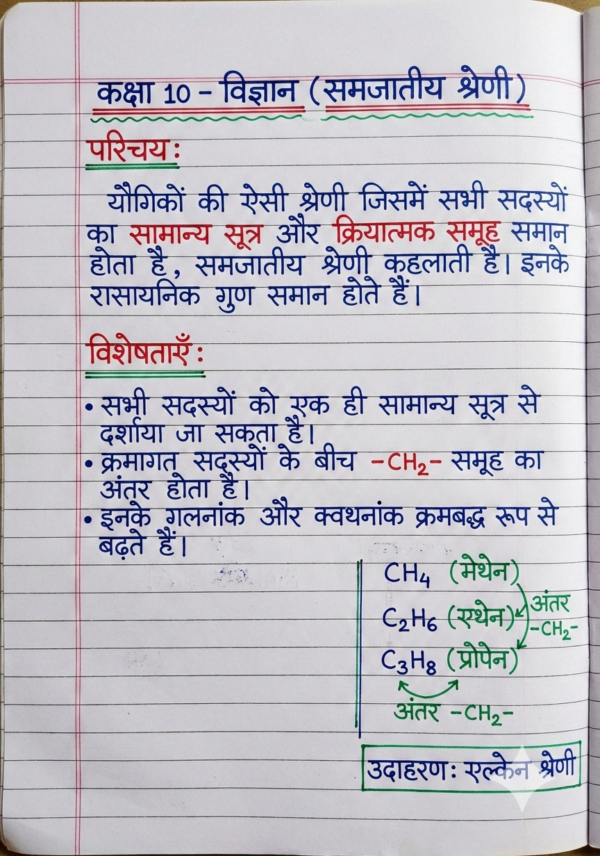 कक्षा 10 – विज्ञान (समजातीय श्रेणी)
परिचय:
यौगिकों की ऐसी श्रेणी जिसमें सभी सदस्यों
का सामान्य सूत्र और क्रियात्मक समूह समान
होता है, समजातीय श्रेणी कहलाती है। इनके
रासायनिक गुण समान होते हैं।
विशेषताएँ:
• सभी सदस्यों को एक ही सामान्य सूत्र से
दर्शाया जा सकता है।
• क्रमागत सदस्यों के बीच –CH₂– समूह का
अंतर होता है।
• इनके गलनांक और क्वथनांक क्रमबद्ध रूप से
बढ़ते हैं।
CH₄ (मेथेन)
C₂H₆ (एथेन)
अंतर
–CH₂–
C₃H₈ (प्रोपेन)
अंतर –CH₂–
उदाहरण: एल्केन श्रेणी